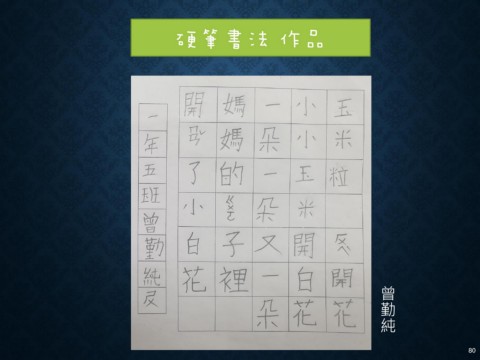 硬筆書法 作品
玉米粒 開花
小小玉米開白花
一朵一朵又一朵
媽媽的子裡
開了小白花
一年五班曾勤純
曾勤純
80